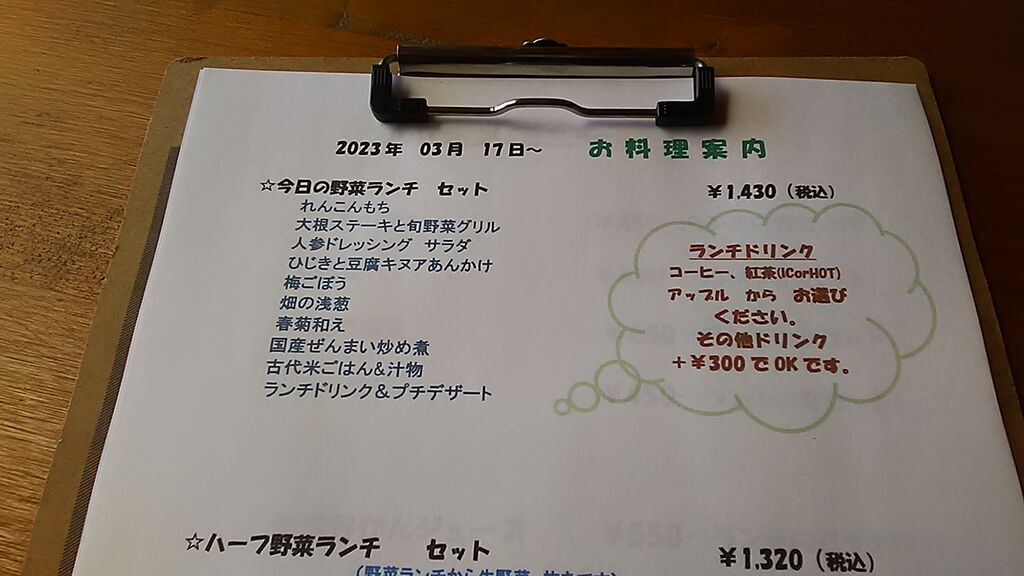 2023年 03月 17日～ お料理案内
☆今日の野菜ランチ セット ￥1,430（税込）
れんこんもち
大根ステーキと旬野菜グリル
人参ドレッシング サラダ
ひじきと豆腐キヌアあんかけ
梅ごぼう
畑の浅葱
春菊和え
国産ぜんまい炒め煮
古代米ごはん&汁物
ランチドリンク＆プチデザート
ランチドリンク
コーヒー、紅茶(ICorHOT)
アップル から お選び
ください。
その他ドリンク
＋￥300でOKです。
☆ハーフ野菜ランチ セット ￥1,320（税込）
(野菜ランチから